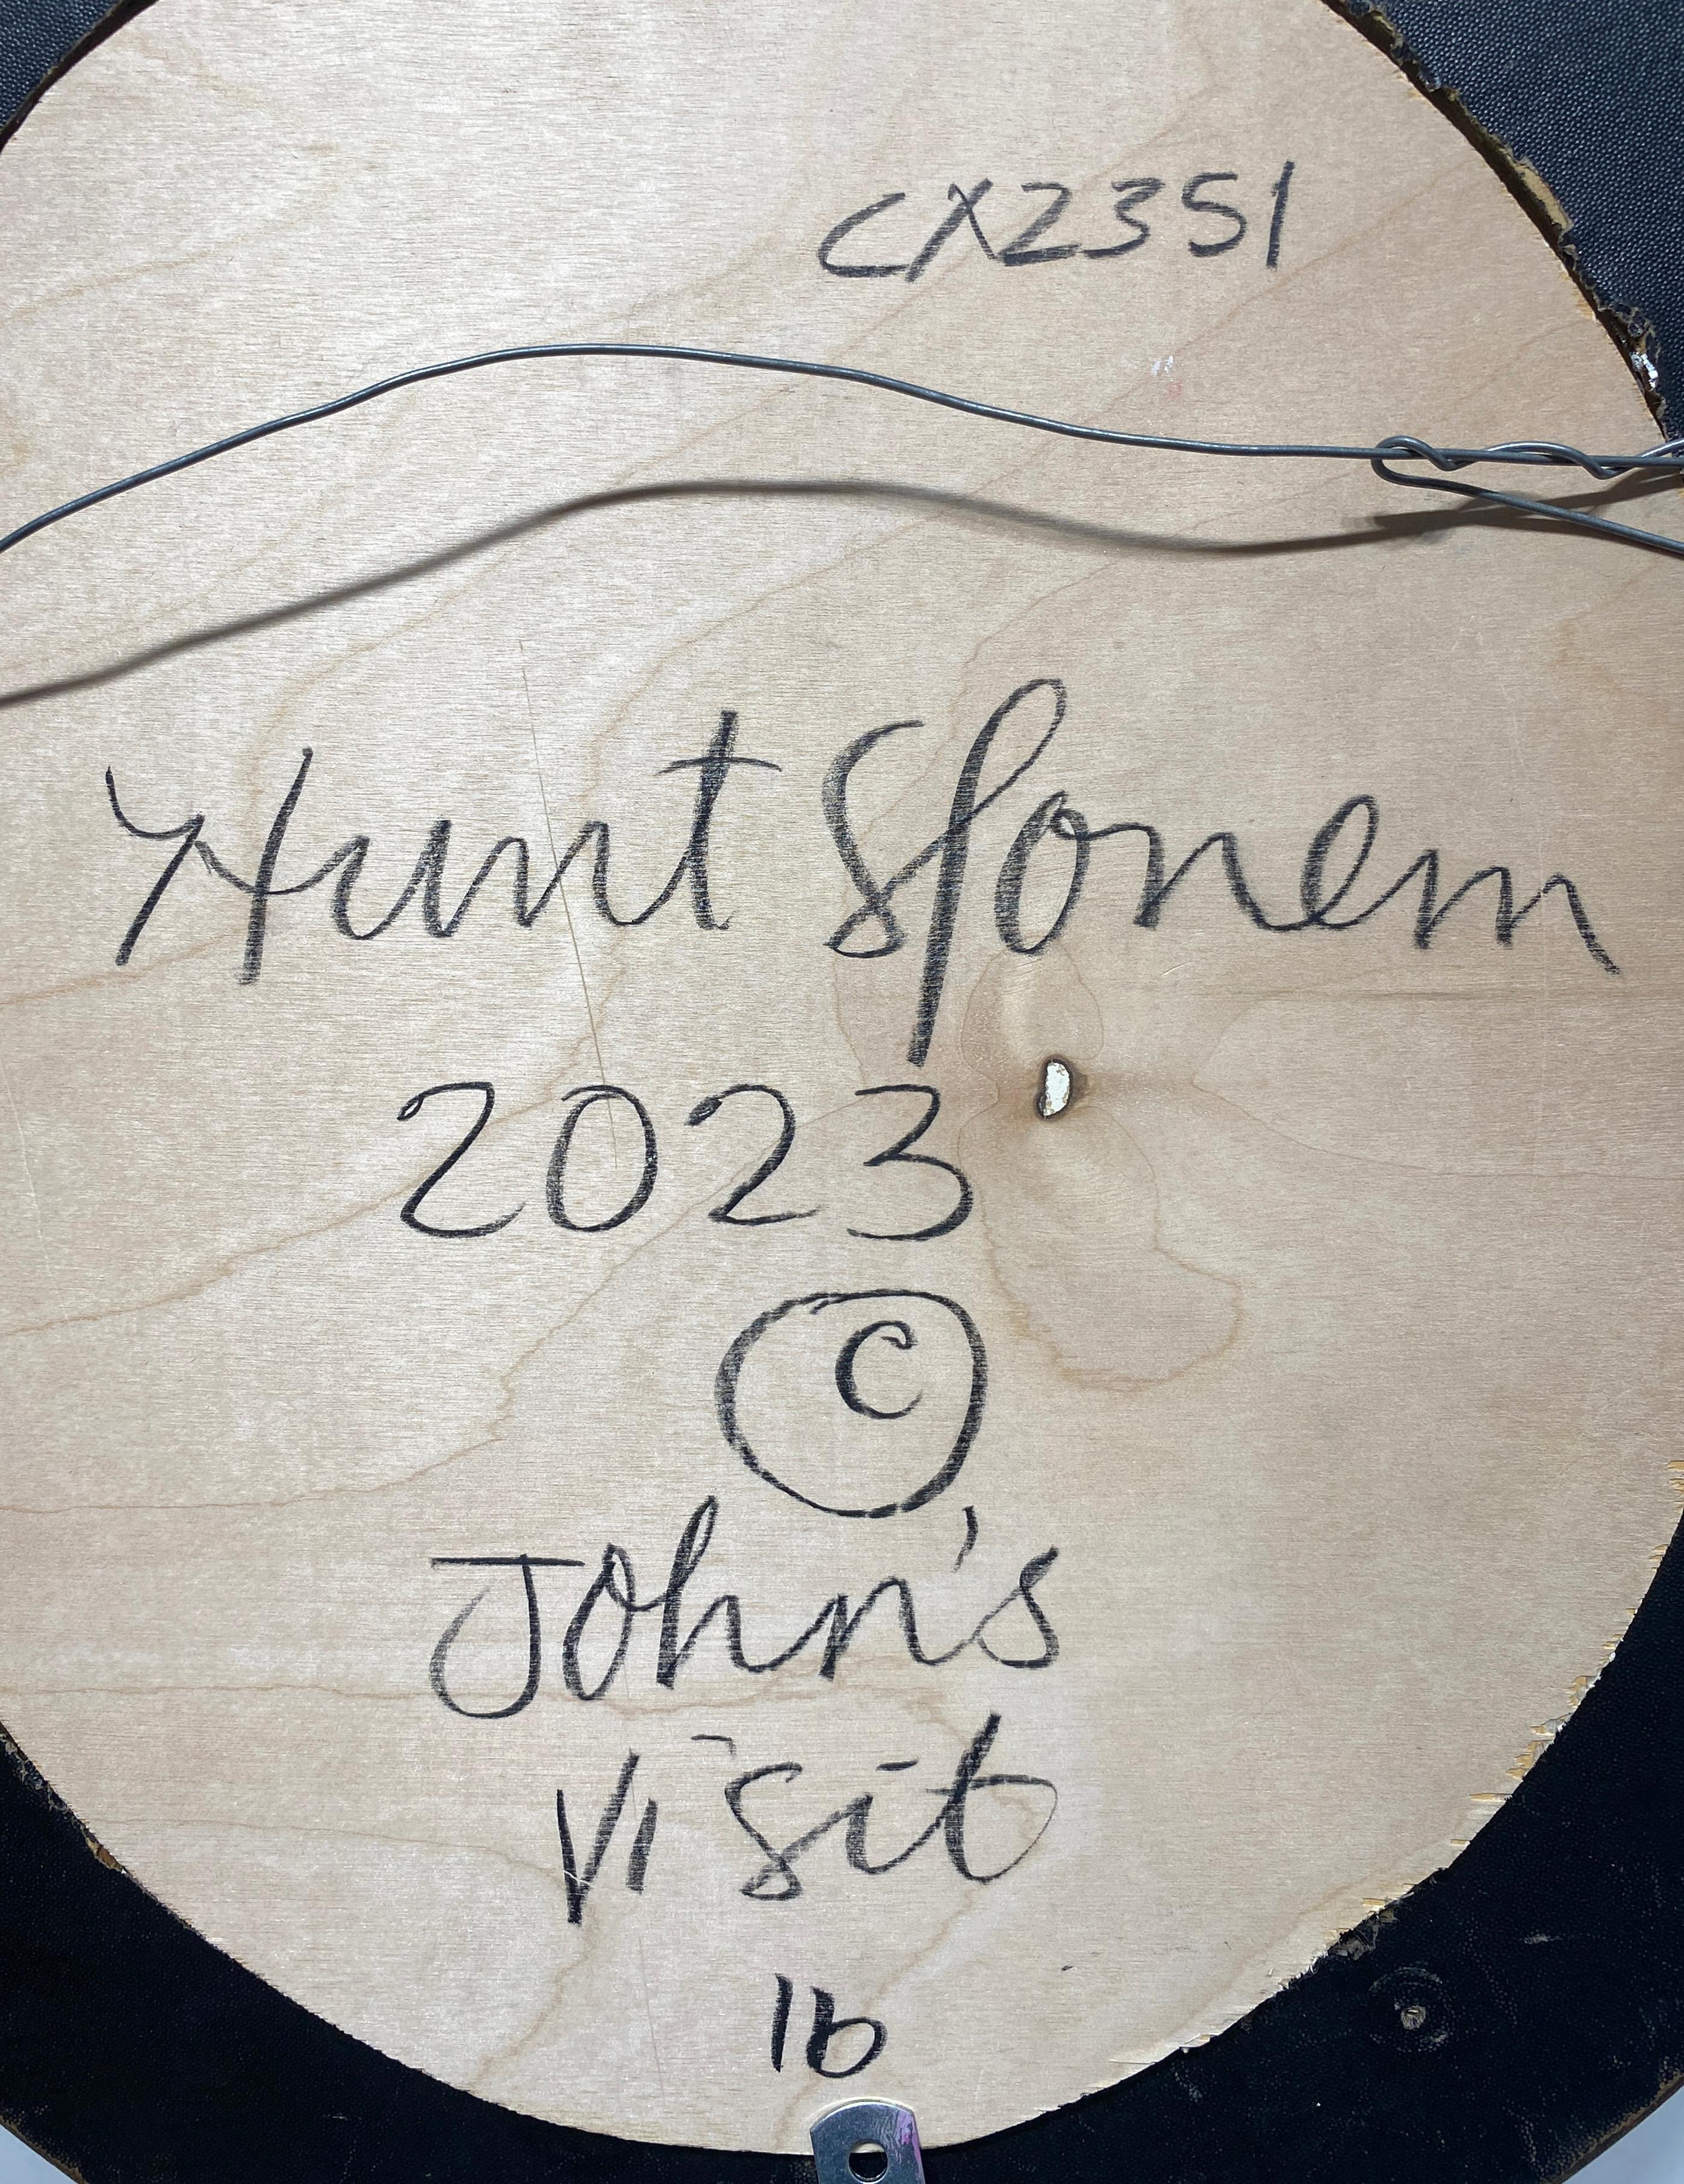 CX2351
Hunt Slonem
2023
©
John's
Visit
16